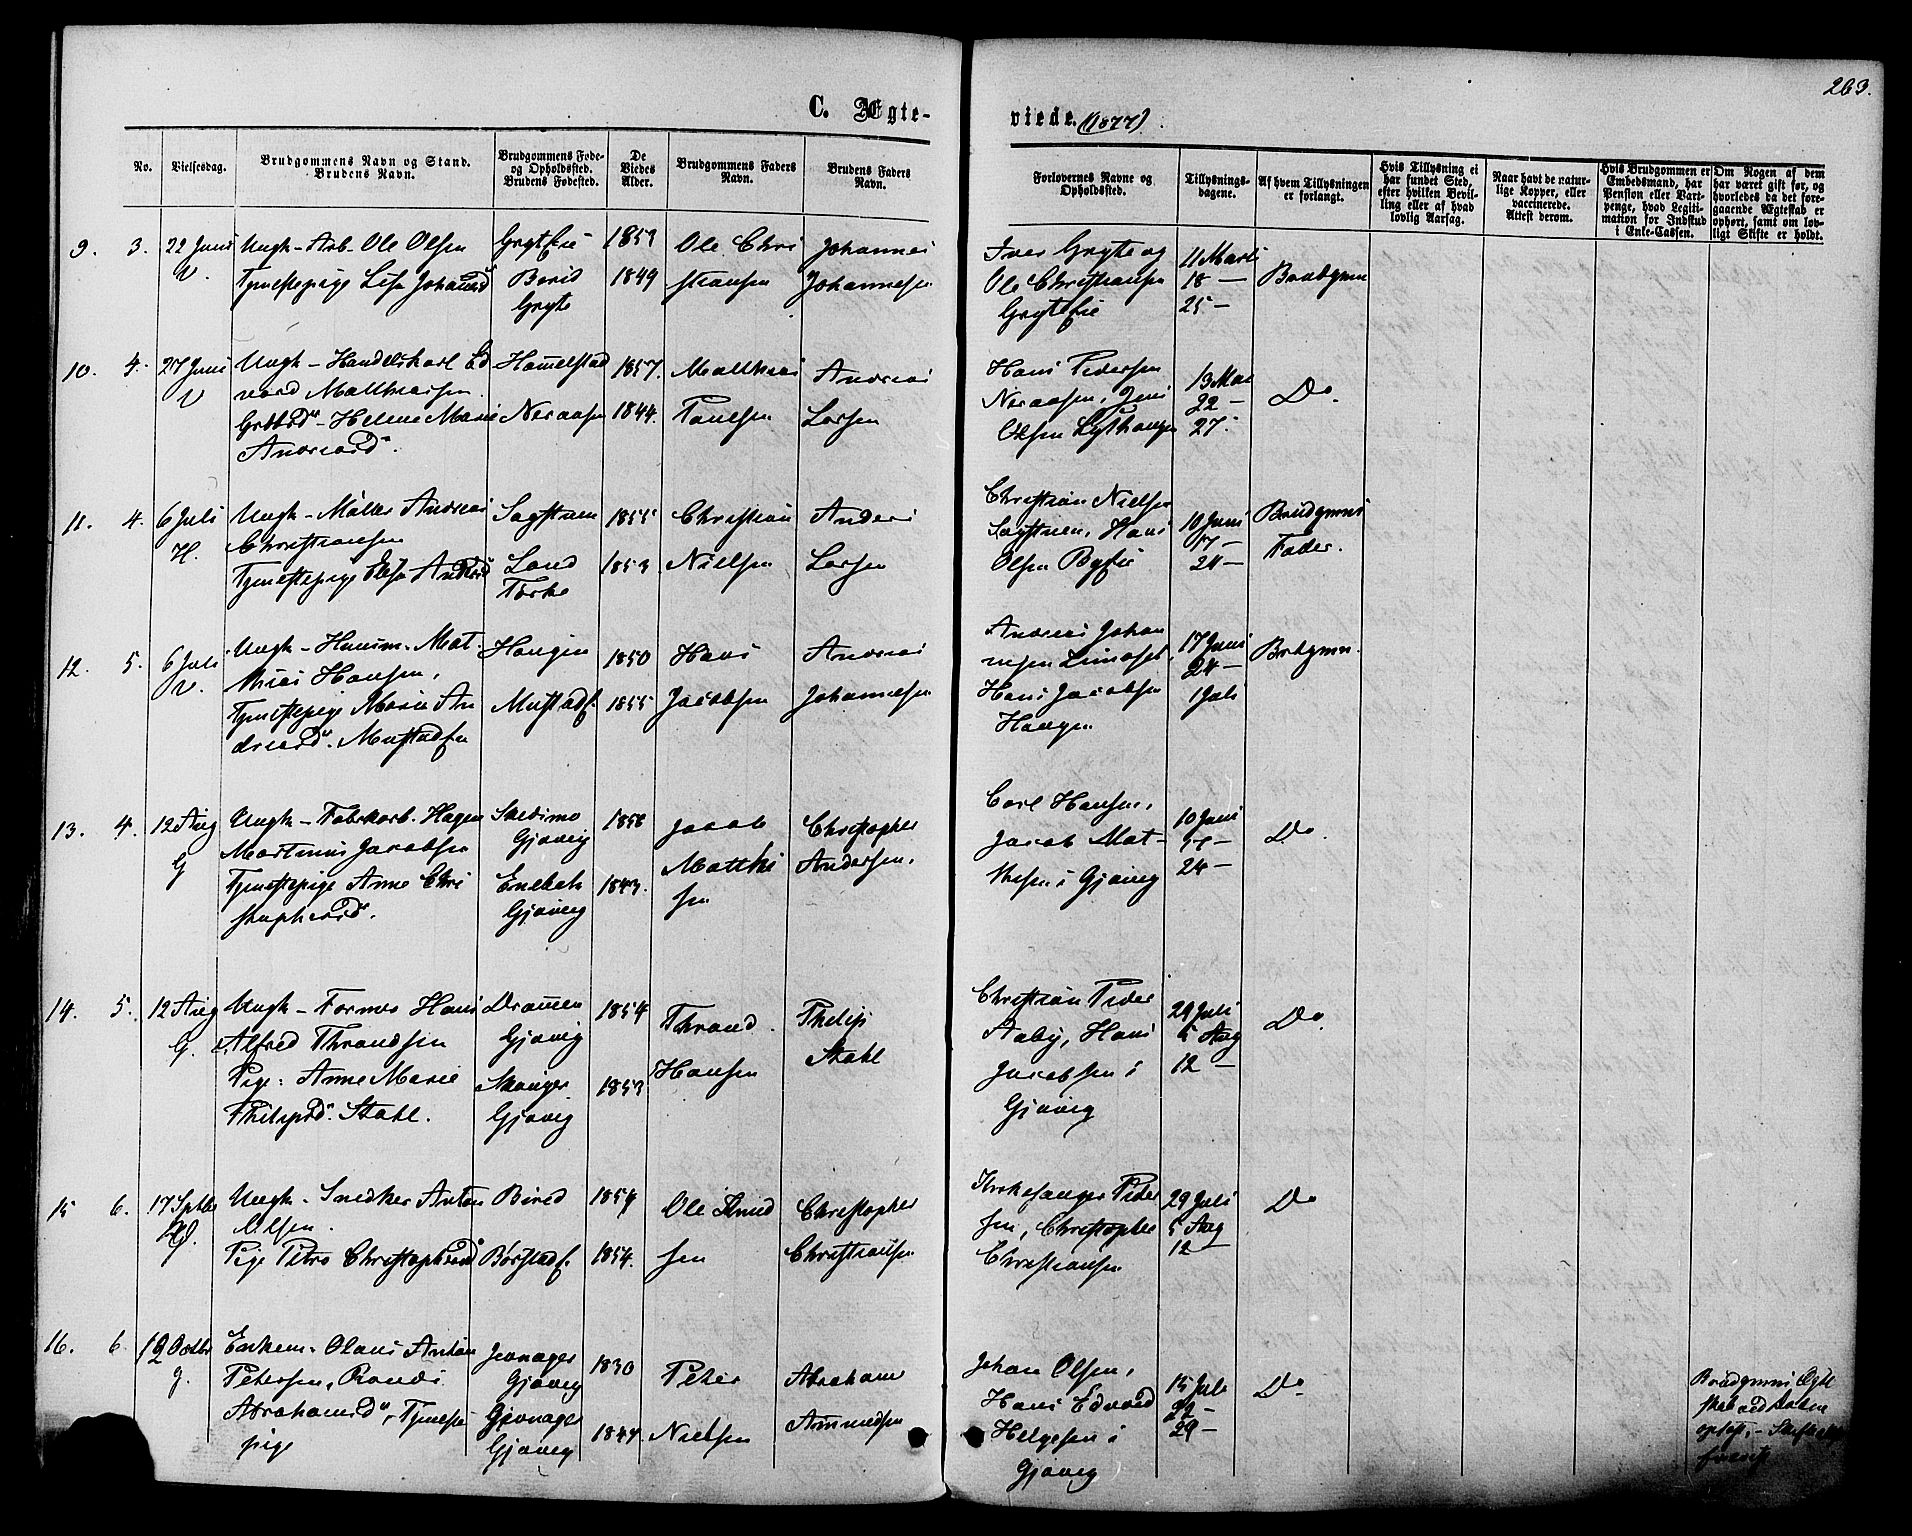 263.
C. Ægte-
viede. (1877).
No.
Vielsesdag.
Brudgommens Navn og Stand.
Brudens Navn.
Brudgommens Føde-
og Opholdssted.
Brudens Fødested.
De
Viedes
Alder.
Brudgommens Faders
Navn.
Brudens Faders
Navn.
Forlovernes Navne og
Opholdssted.
Tillysnings-
dagene.
Af hvem Tillysningen
er forlangt.
Hvis Tillysning ei
har fundet Sted,
efter hvilken Bevil-
ling eller af hvad
lovlig Aarsag.
Naar havt de natur-
lige Kopper, eller
vaccinerede.
Attest derom.
Hvis Brudgommen er
Embedsmand, har
Pension eller Vart-
penge, hvad Legiti-
mation for Indskud
i Enke-Cassen.
Om Nogen af dem
har været gift før, og
hvorledes da det fore-
gaaende Ægteskab er
ophørt, samt om lov-
ligt Skifte er holdt.
9. 3. 22 Juni
V.
Ungk- Arb- Ole Olsen
Tjenestepige Lisa Johansd
GrytEie
Berid
Gryte
1849
Ole Chri
stiansen
Johannes
Johannesen
Iver Gryte og
Ole Christiansen
GryteEie
11 Marts
18 —
25 —
Brudgmen
10. 4. 27 Juni
V
Ungk- Handelskarl Ed
vard Matthiassen
- Helene Marie
Andreasd".
Hammelstad
Neraasen
1857.
1844.
Matthias
Paulsen
Andreas
Larsen
Hans Pedersen
Neraasen, Jens
Olsen
13 Mai
22 —
27.
Do.
11. 4. 6 Juli
H.
Ungk- Møller Andreas
Christiansen
Tjenestepige Elisa Andersd
Sagstuen
Land
1855
1853
Christian
Nielsen
Anders
Larsen
Christian Nielsen
Sagstuen, Hans
Olsen
10 Juni
17 —
24 —
Brudgmens
Fader.
12. 5. 6 Juli
V.
Ungk- Huusm. Mat
thias Hansen,
Tjenestepige Marie An
dreasd". Mustadeie
Haugen
Mustade.
1850
1855
Hans
Jacobsen
Andreas
Johannesen
Andreas Johan
nesen
Hans Jacobsen
Haugen
17 Juni
24 —
1 Juli
Brdgmn.
13. 4. 12 Aug
G
Ungk- Fabrkarb. Hagen
Martinus Jacobsen
Tjenestepige Anne Chri
stophersd".
Skedsmo
Gjøvig
Enebak
Gjøvig
1843.
Jacob
Matthi
sen
Christopher
Andersen.
Carl Hansen,
Jacob Mat-
thisen i Gjøvig
10 Juni
17 —
24 —
Do.
14. 5. 12 Aug
G.
Ungk- Former Hans
Alfred Thrandsen
Pige: Anne Marie
Philipsd". Stahl.
Drammen
Gjøvig
Gjøvig
1854
1853
Thrand
Hansen
Philip
Stahl
Christian Peder
Aaby, Hans
Jacobsen i
Gjøvig
29 Juli
5 Aug
12 —
Do.
15 6. 17 Sptbr
Ungk- Snedker Anton
Olsen.
Pige Petra Christophersd
Bired
Børstade.
1854
1854.
Ole Knud
sen
Christopher
Christiansen
Kirkesanger Peder
sen, Christopher
Christiansen
29 Juli
5 Aug
12 —
Do
16. 6. 12 Octbr
G.
Enkem. Olaus Anton
Petersen, Randi
Abrahamsd", Tjeneste
pige
Jevnager
Gjøvig
Gjevnager
Gjøvig
1830
1844.
Peter
Nielsen
Abraham
Ammundsen
Johan Olsen,
Hans Edvard
Helgesen i
Gjøvig
15 Juli
22 —
29 —
Do
Brudgmns Egte
skab ved Døden